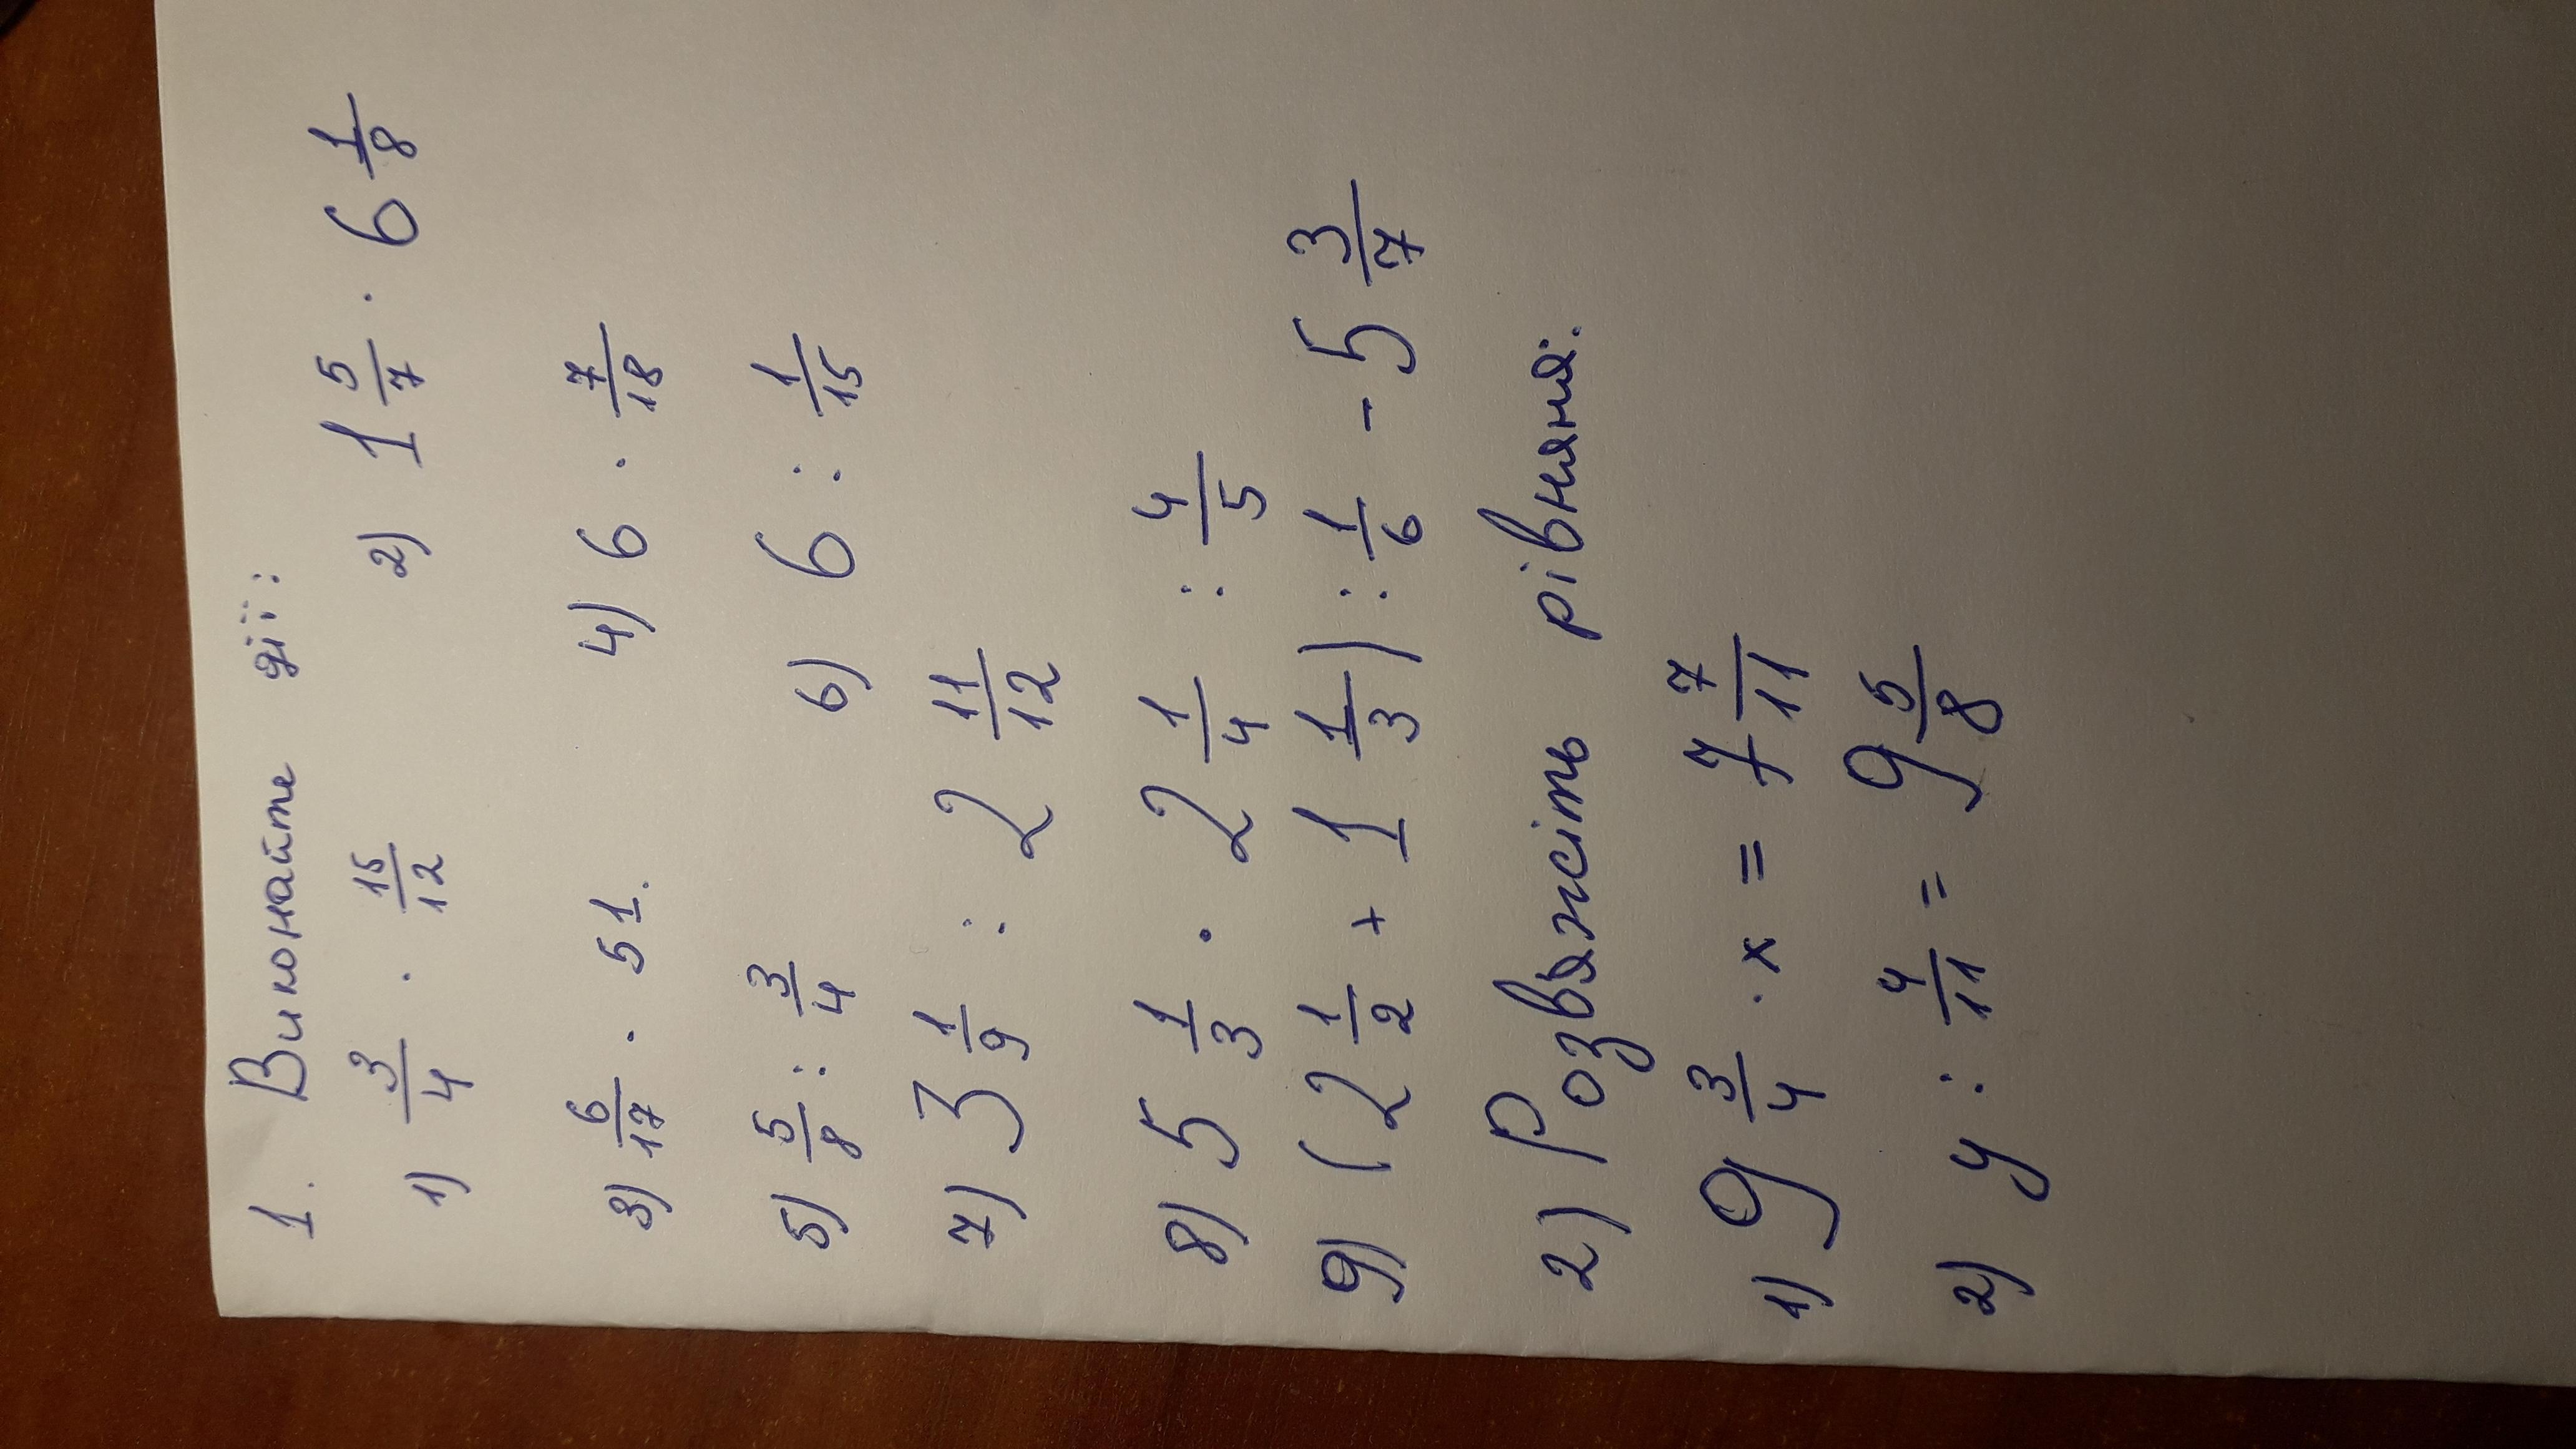 1. Виконайте дії:
1) 3/4 · 15/12 2) 1 5/7 · 6 1/8
3) 6/17 · 51. 4) 6 · 7/18
5) 5/8 : 3/4 6) 6 : 1/15
7) 3 1/9 : 2 11/12
8) 5 1/3 · 2 1/4 : 4/5
9) (2 1/2 + 1 1/3) : 1/6 - 5 3/7
2) Розвяжіть рівняня:
1) 9 3/4 · x = 7 7/11
2) y : 4/11 = 9 5/8